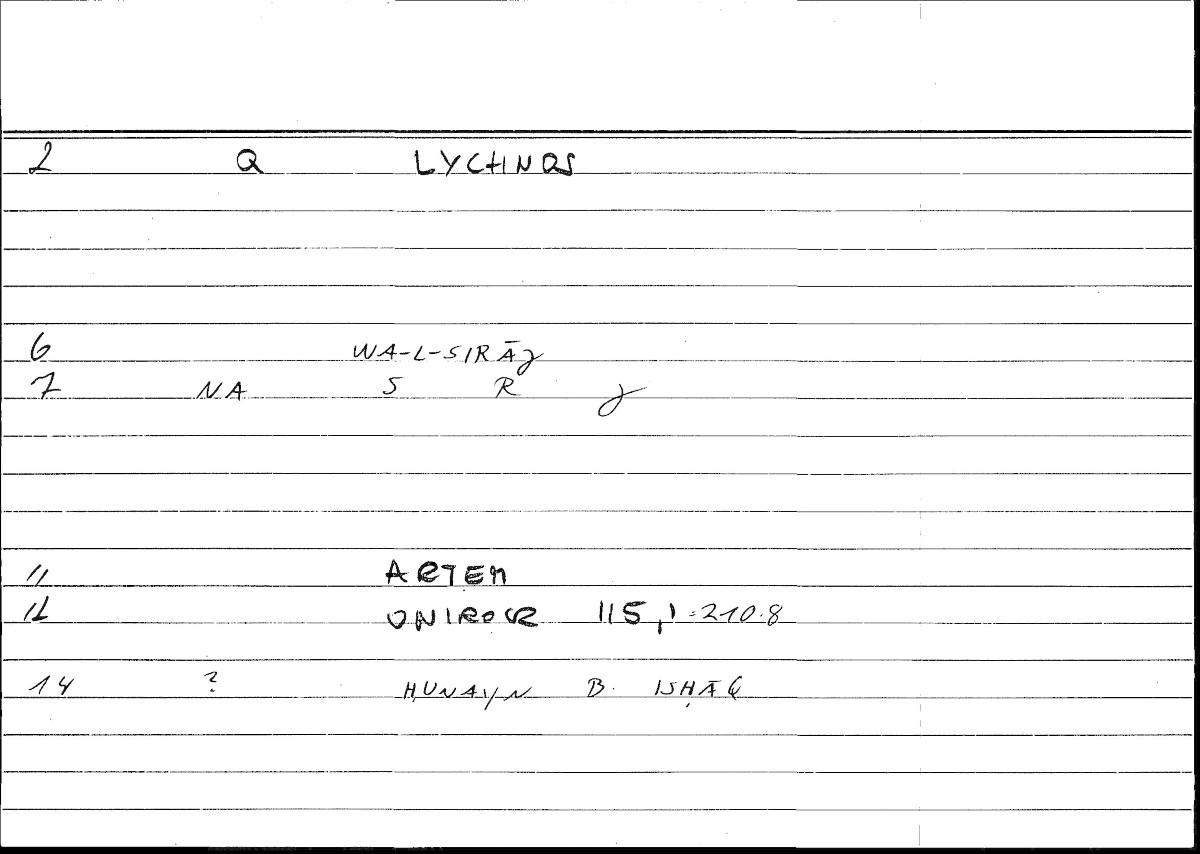 2 Q LYCHNOS
6 WA-L-SIRĀJ
7 NA S R J
11 ARTEM
12 ONIROCR 115,1=210.8
14 ? ḤUNAYN B. ISḤĀQ